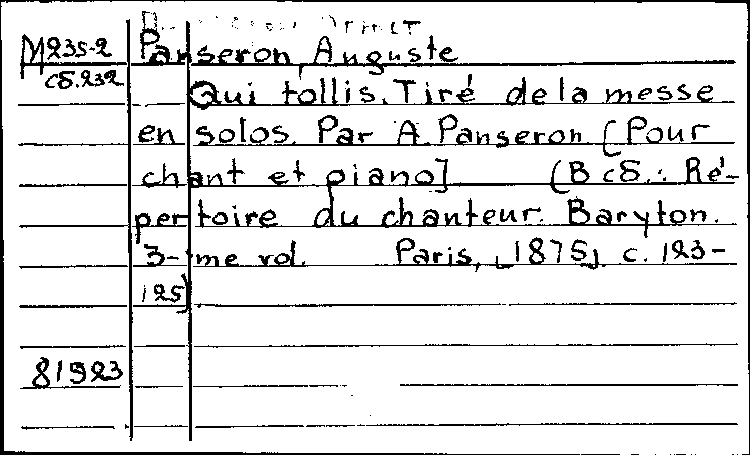 M235-2 Panseron, Auguste
сб.232 Qui tollis. Tiré de la messe
en solos. Par A. Panseron [Pour
chant et piano] (В сб.: Ré-
pertoire du chanteur. Baryton.
3-me vol. Paris, [1875] с. 123-
125)
81923